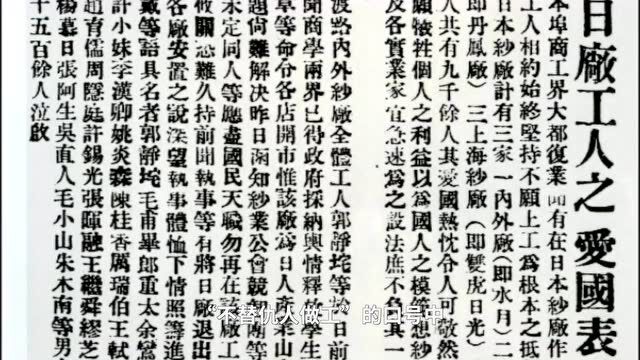 日廠工人之愛國表
本埠商工界大都復業聞有在日本紗廠作
工人相約始終堅持不願上工為根本之抵
日本紗廠計有三家一內外廠(即水月)二
(即丹鳳廠)三上海紗廠(即雙虎日光)
人共有九千餘人其愛國熱忱令人可敬然
願犧牲個人之利益以為國人之模範想紗
及各實業家宜急速為之設法庶不負其一
渡路內外紗廠全體工人郭靜坨等於日前
聞商學兩界已得政府採納輿情釋放學生
章等命令各店開市惟該廠為日人產業
題尚難解決昨日函知紗業公會 等
未定同人等應盡國民天職勿再在該廠
被關恐難久持前聞執事等有將日廠退出
各廠安置之說深望執事體恤下情照籌進
戴等語具名者郭靜坨毛甫畢郎重太余鸞
許小妹李漢卿姚炎霖陳桂香厲瑞伯王軾
趙育儒周隱庭許錫光張暉融王繼舜繆芝
楊慕日張阿生吳直人毛小山朱木南等男
十五百餘人泣啟
“不替仇人做工”的口号中